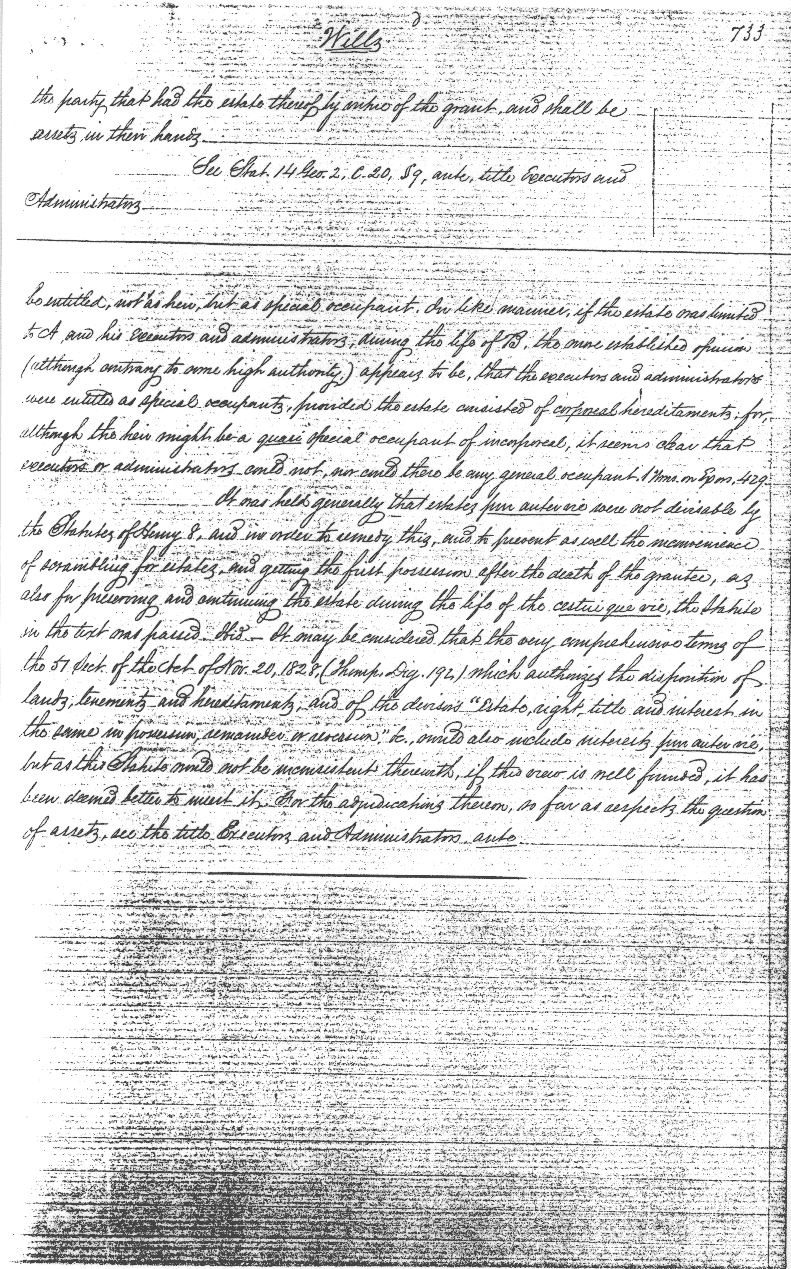 Wills
733
the party that had the estate thereof by virtue of the grant, and shall be
assets in their hands
See Stat. 14 Geo. 2, C. 20, §9, ante, title Executors and
Administrators
be entitled, not as heir, but as special occupant. In like manner, if the estate was limited
to A and his executors and administrators, during the life of B. the more established opinion
(although contrary to some high authority,) appears to be, that the executors and administrators
were entitled as special occupants, provided the estate consisted of corporeal hereditaments; for,
although the heir might be a quasi special occupant of incorporeal, it seems clear that
executors or administrators could not, nor could there be any general occupant. 1 Wms. on Exors. 429.
It was held generally that estates pur auter vie were not devisable by
the Statutes of Henry 8, and in order to remedy this, and to prevent as well the inconvenience
of scrambling for estates, and getting the first possession after the death of the grantee, as
also for preserving and continuing the estate during the life of the cestui que vie, the statute
in the text was passed. Ibid. — It may be considered that the very comprehensive terms of
the 51 Sect. of the Act of Nov. 20, 1828, (Thomp. Dig. 192) which authorizes the disposition of
lands, tenements and hereditaments, and of the devisors "Estate, right, title and interest in
the same in possession, remainder or reversion" &c., would also include interests pur auter vie,
but as this Statute would not be inconsistent therewith, if this view is well founded, it has
been deemed better to insert it. For the adjudications thereon, so far as respects the question
of assets, see the title Executors and Administrators, ante